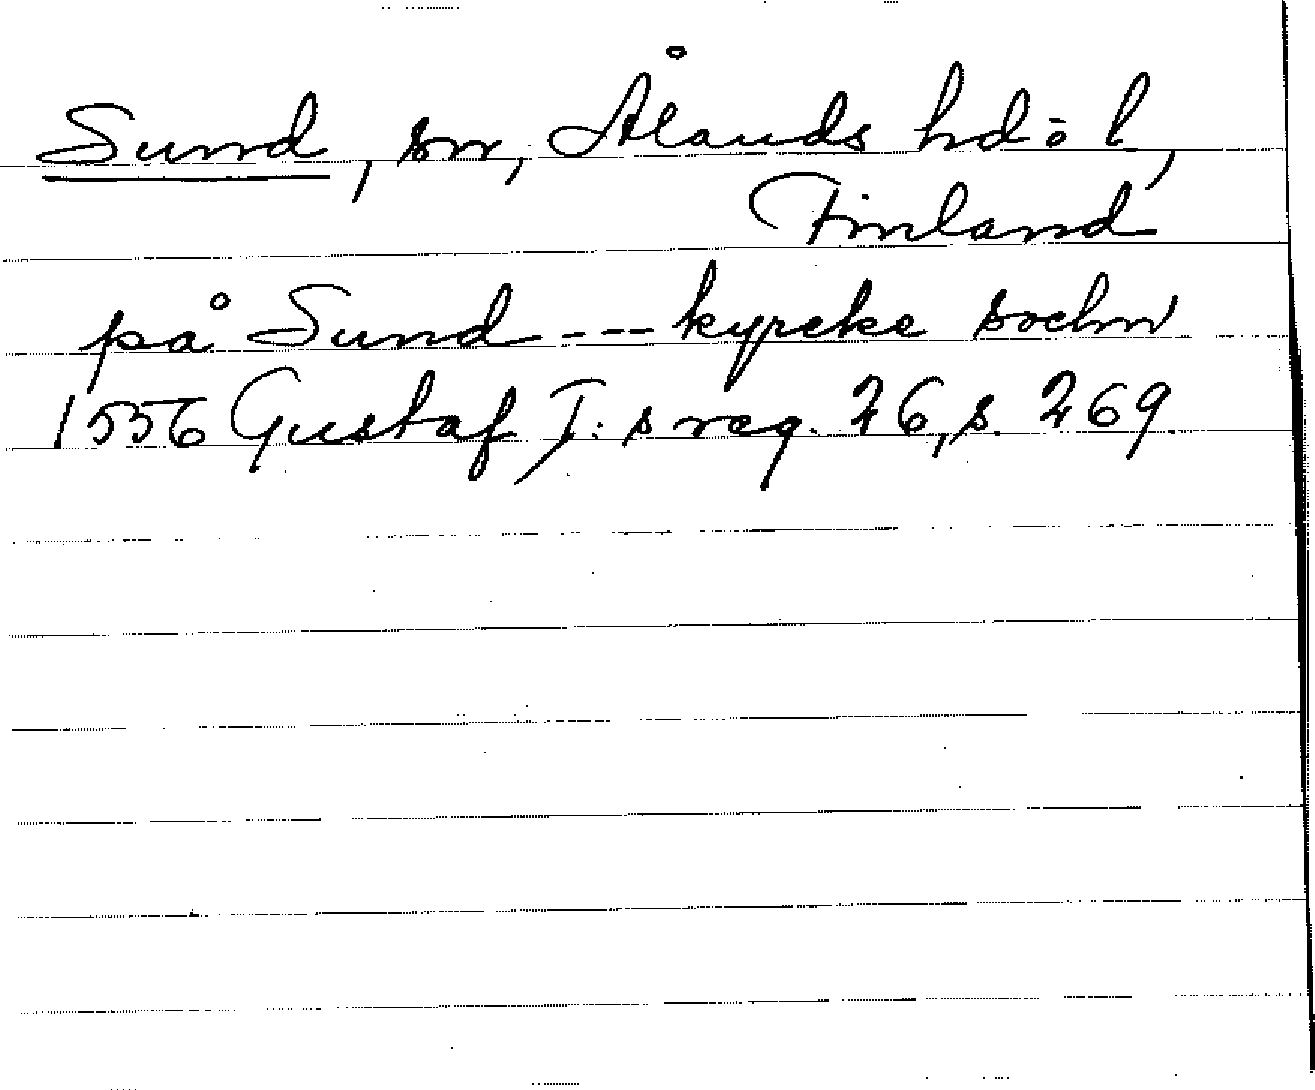 Sund, sn, Ålands hd o l,
Finland
på Sund --- kyrcke sochn
1556 Gustaf I:s reg. 26, s. 269